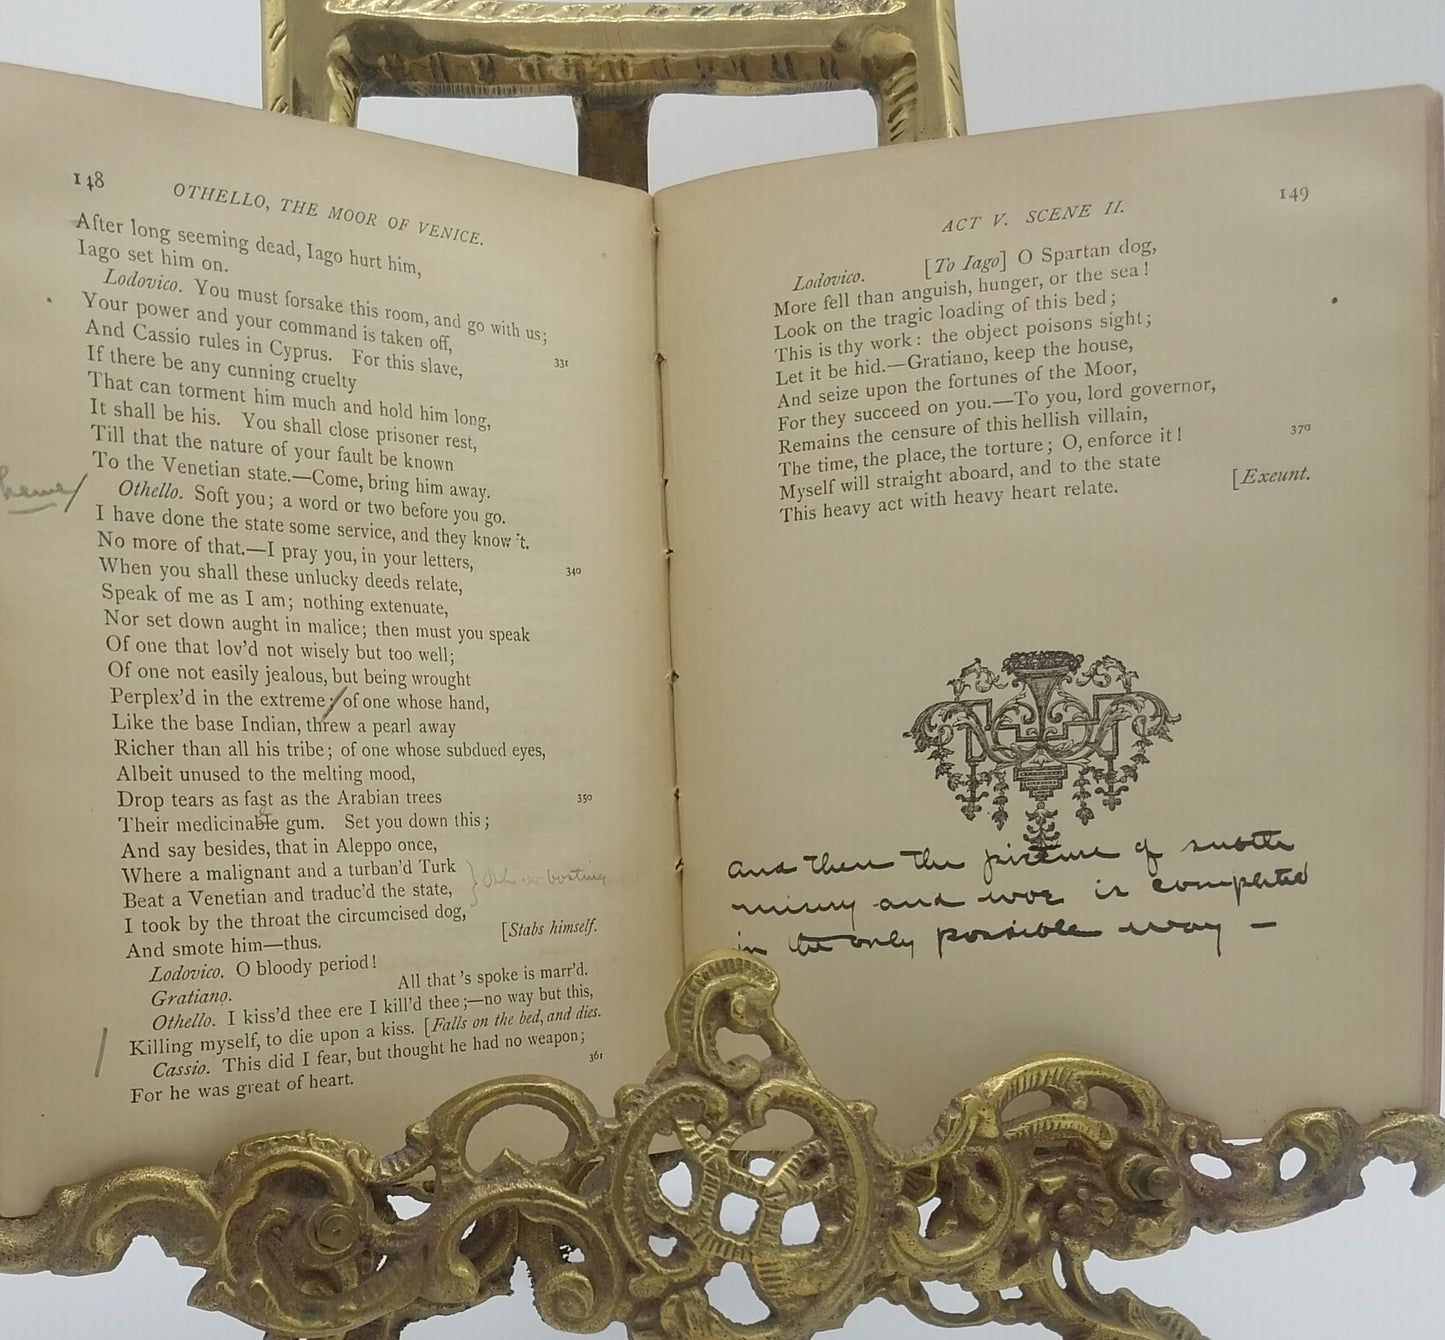 148
OTHELLO, THE MOOR OF VENICE.
After long seeming dead, Iago hurt him,
Iago set him on.
Lodovico. You must forsake this room, and go with us;
Your power and your command is taken off,
And Cassio rules in Cyprus. For this slave,
331
If there be any cunning cruelty
That can torment him much and hold him long,
It shall be his. You shall close prisoner rest,
Till that the nature of your fault be known
To the Venetian state.—Come, bring him away.
Othello. Soft you; a word or two before you go.
I have done the state some service, and they know 't.
No more of that.—I pray you, in your letters,
340
When you shall these unlucky deeds relate,
Speak of me as I am; nothing extenuate,
Nor set down aught in malice; then must you speak
Of one that lov'd not wisely but too well;
Of one not easily jealous, but being wrought
Perplex'd in the extreme; of one whose hand,
Like the base Indian, threw a pearl away
Richer than all his tribe; of one whose subdued eyes,
Albeit unused to the melting mood,
Drop tears as fast as the Arabian trees
350
Their medicinable gum. Set you down this;
And say besides, that in Aleppo once,
Where a malignant and a turban'd Turk
Beat a Venetian and traduc'd the state,
I took by the throat the circumcised dog,
And smote him—thus.
[Stabs himself.
Lodovico. O bloody period!
Gratiano. All that 's spoke is marr'd.
Othello. I kiss'd thee ere I kill'd thee;—no way but this,
Killing myself, to die upon a kiss. [Falls on the bed, and dies.
Cassio. This did I fear, but thought he had no weapon;
361
For he was great of heart.
ACT V. SCENE II.
149
Lodovico. [To Iago] O Spartan dog,
More fell than anguish, hunger, or the sea!
Look on the tragic loading of this bed;
This is thy work: the object poisons sight;
Let it be hid.—Gratiano, keep the house,
And seize upon the fortunes of the Moor,
For they succeed on you.—To you, lord governor,
Remains the censure of this hellish villain,
The time, the place, the torture; O, enforce it!
370
Myself will straight aboard, and to the state
This heavy act with heavy heart relate.
[Exeunt.
and then the picture of subtle
misery and woe is completed
in the only possible way —